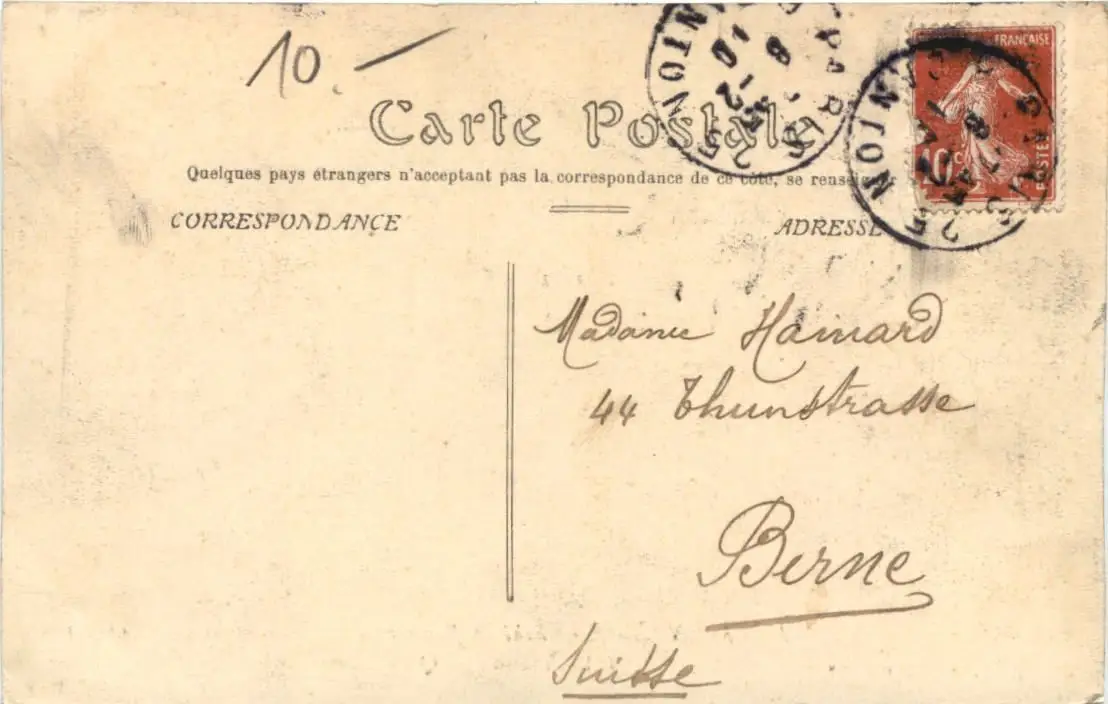 10.-
Carte Postale
Quelques pays étrangers n'acceptant pas la correspondance de ce côté, se renseigner
CORRESPONDANCE
ADRESSE
FRANÇAISE
10 c
POSTES
Madame Hainard
44 Thunstrasse
Berne
Suisse